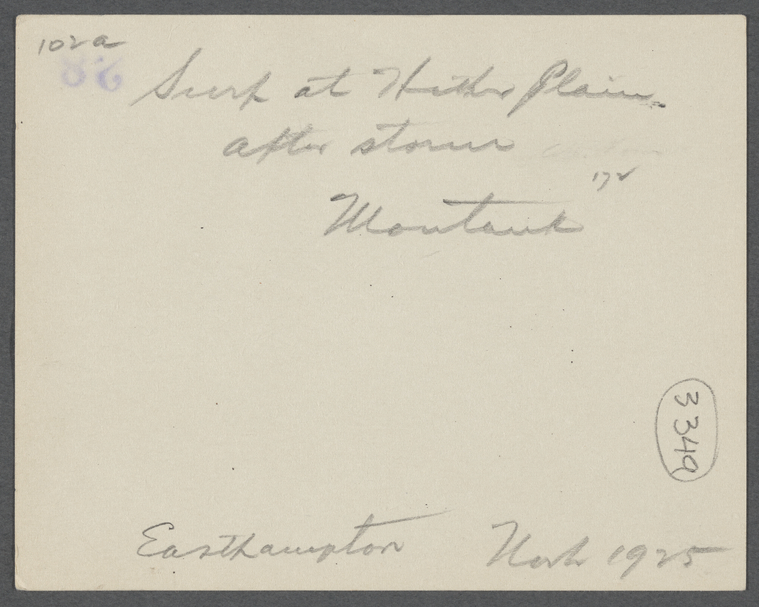 102a
Surf at Hither Plain
after storm
172
Montauk
3349
Easthampton 1925